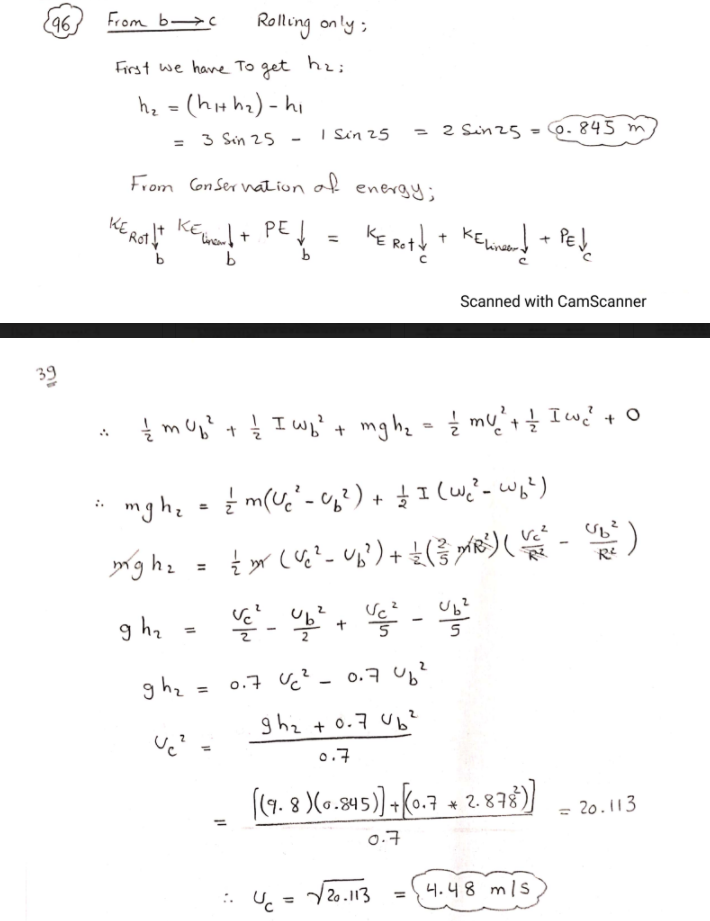 96 From b → c Rolling only;
First we have To get h₂:
h₂ = (h₁+h₂) - h₁
= 3 Sin25 - 1 Sin25 = 2 Sin25 = 0.845 m
From Conservation of energy;
KE Rot↓b + KE Linear↓b + PE↓b = KE Rot↓c + KE Linear↓c + PE↓c
Scanned with CamScanner
39
∴ 1/2 m υ_b² + 1/2 I ω_b² + mgh₂ = 1/2 m υ_c² + 1/2 I ω_c² + 0
∴ mgh₂ = 1/2 m(υ_c² - υ_b²) + 1/2 I (ω_c² - ω_b²)
mgh₂ = 1/2 m (υ_c² - υ_b²) + 1/2 (2/5 mR²)(υ_c²/R² - υ_b²/R²)
gh₂ = υ_c²/2 - υ_b²/2 + υ_c²/5 - υ_b²/5
gh₂ = 0.7 υ_c² - 0.7 υ_b²
υ_c² = (gh₂ + 0.7 υ_b²)/0.7
= ([(9.8)(0.845)] + [(0.7 * 2.878²)])/0.7 = 20.113
∴ υ_c = √20.113 = 4.48 m/s